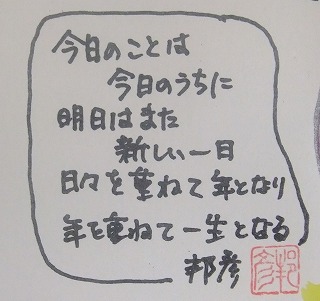 今日のことは
今日のうちに
明日はまた
新しい一日
日々を重ねて年となり
年を重ねて一生となる
邦彦
邦彦